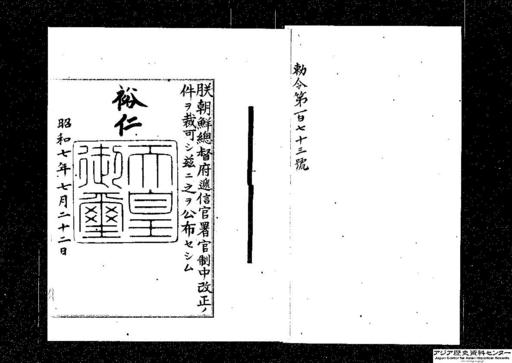 勅令第一百七十三號
朕朝鮮總督府遞信官署官制中改正ノ
件ヲ裁可シ茲ニ之ヲ公布セシム
裕仁
天皇
御璽
昭和七年七月二十二日
アジア歴史資料センター
Japan Center for Asian Historical Records